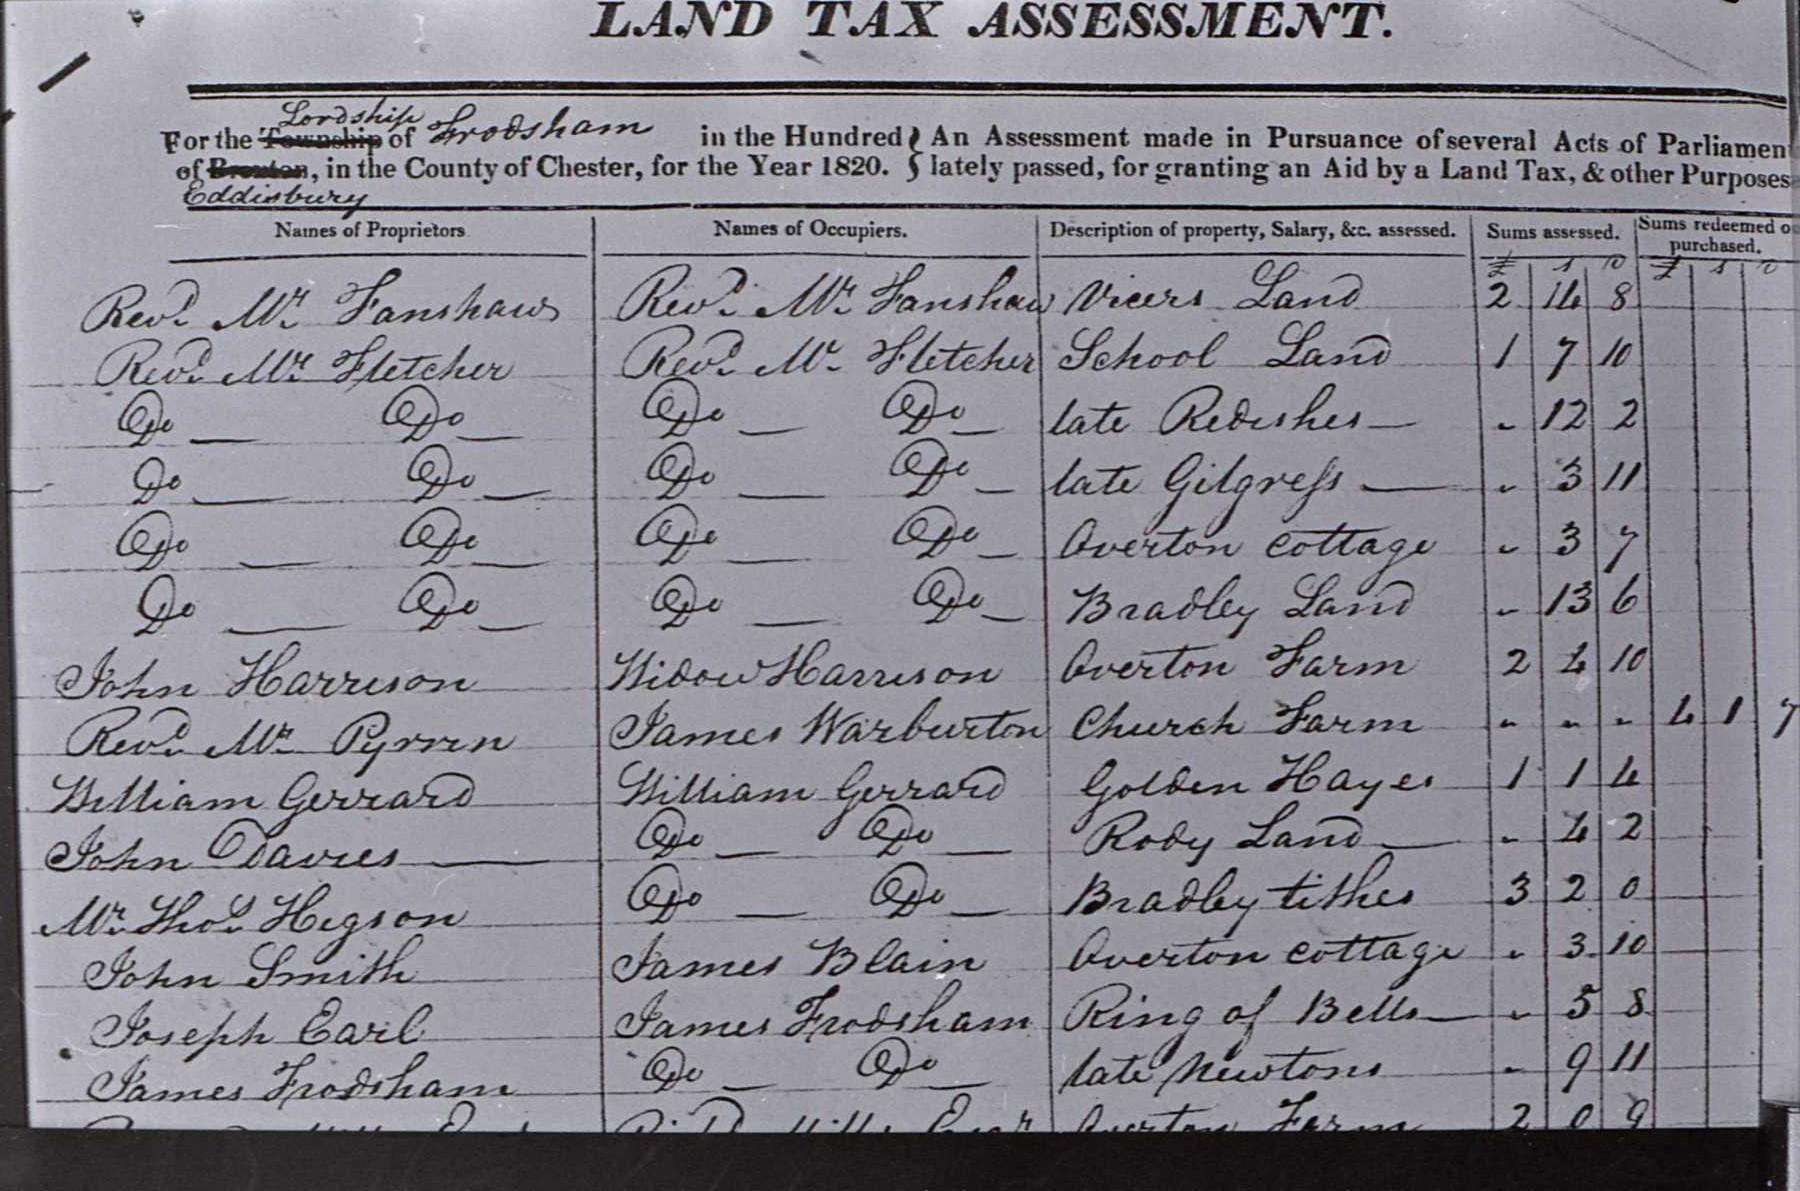 LAND TAX ASSESSMENT.
Lordship
For the Township of Frodsham in the Hundred } An Assessment made in Pursuance of several Acts of Parliamen
of Broxton, in the County of Chester, for the Year 1820. } lately passed, for granting an Aid by a Land Tax, & other Purposes
Eddisbury
Names of Proprietors Names of Occupiers. Description of property, Salary, &c. assessed. Sums assessed. Sums redeemed o
purchased.
£ s D £ s D
Revd. Mr. Fanshaw Revd. Mr. Fanshaw Vicers Land 2 14 8
Revd. Mr. Fletcher Revd. Mr. Fletcher School Land 1 7 10
Do — Do — Do — Do — late Redishes — " 12 2
Do — Do — Do — Do — late Gilgress — " 3 11
Do — Do — Do — Do — Overton Cottage " 3 7
Do — Do — Do — Do — Bradley Land " 13 6
John Harrison Widow Harrison Overton Farm 2 4 10
Revd. Mr. James Warburton Church Farm " " " 4 1 7
William Gerrard William Gerrard Golden Hayes 1 1 4
John Davies — Do — Do — Rody Land — " 4 2
Mr. Thos. Higson Do — Do — Bradley tithes 3 2 0
John Smith James Blain Overton Cottage " 3 10
Joseph Earl James Frodsham Ring of Bells — " 5 8
James Frodsham Do — Do — late Newtons " 9 11
Overton Farm 2 0 9